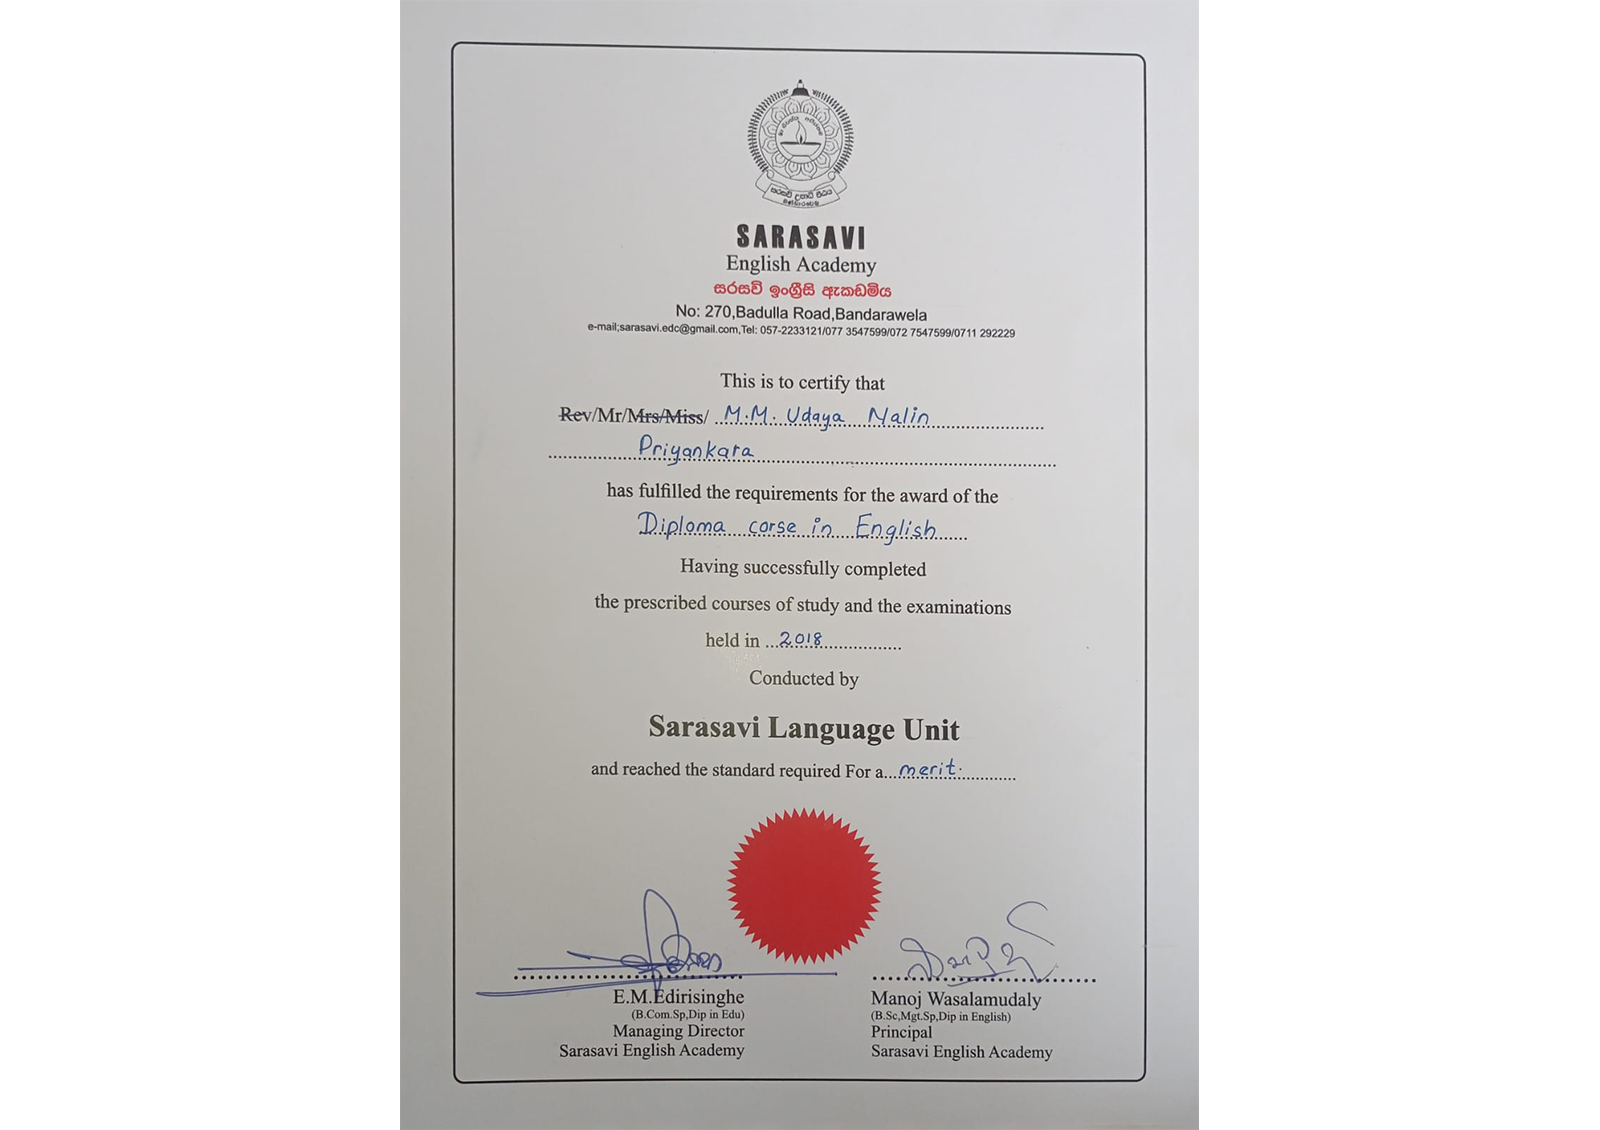 සරසවි උසාවි පීඨය
බණ්ඩාරවෙල
SARASAVI
English Academy
සරසවි ඉංග්‍රීසි ඇකඩමිය
No: 270,Badulla Road,Bandarawela
e-mail;sarasavi.edc@gmail.com,Tel: 057-2233121/077 3547599/072 7547599/0711 292229
This is to certify that
Rev/Mr/Mrs/Miss/ M.M. Udaya Nalin
Priyankara
has fulfilled the requirements for the award of the
Diploma corse in English
Having successfully completed
the prescribed courses of study and the examinations
held in 2018
Conducted by
Sarasavi Language Unit
and reached the standard required For a merit.
E.M.Edirisinghe
(B.Com.Sp,Dip in Edu)
Managing Director
Sarasavi English Academy
Manoj Wasalamudaly
(B.Sc,Mgt.Sp,Dip in English)
Principal
Sarasavi English Academy